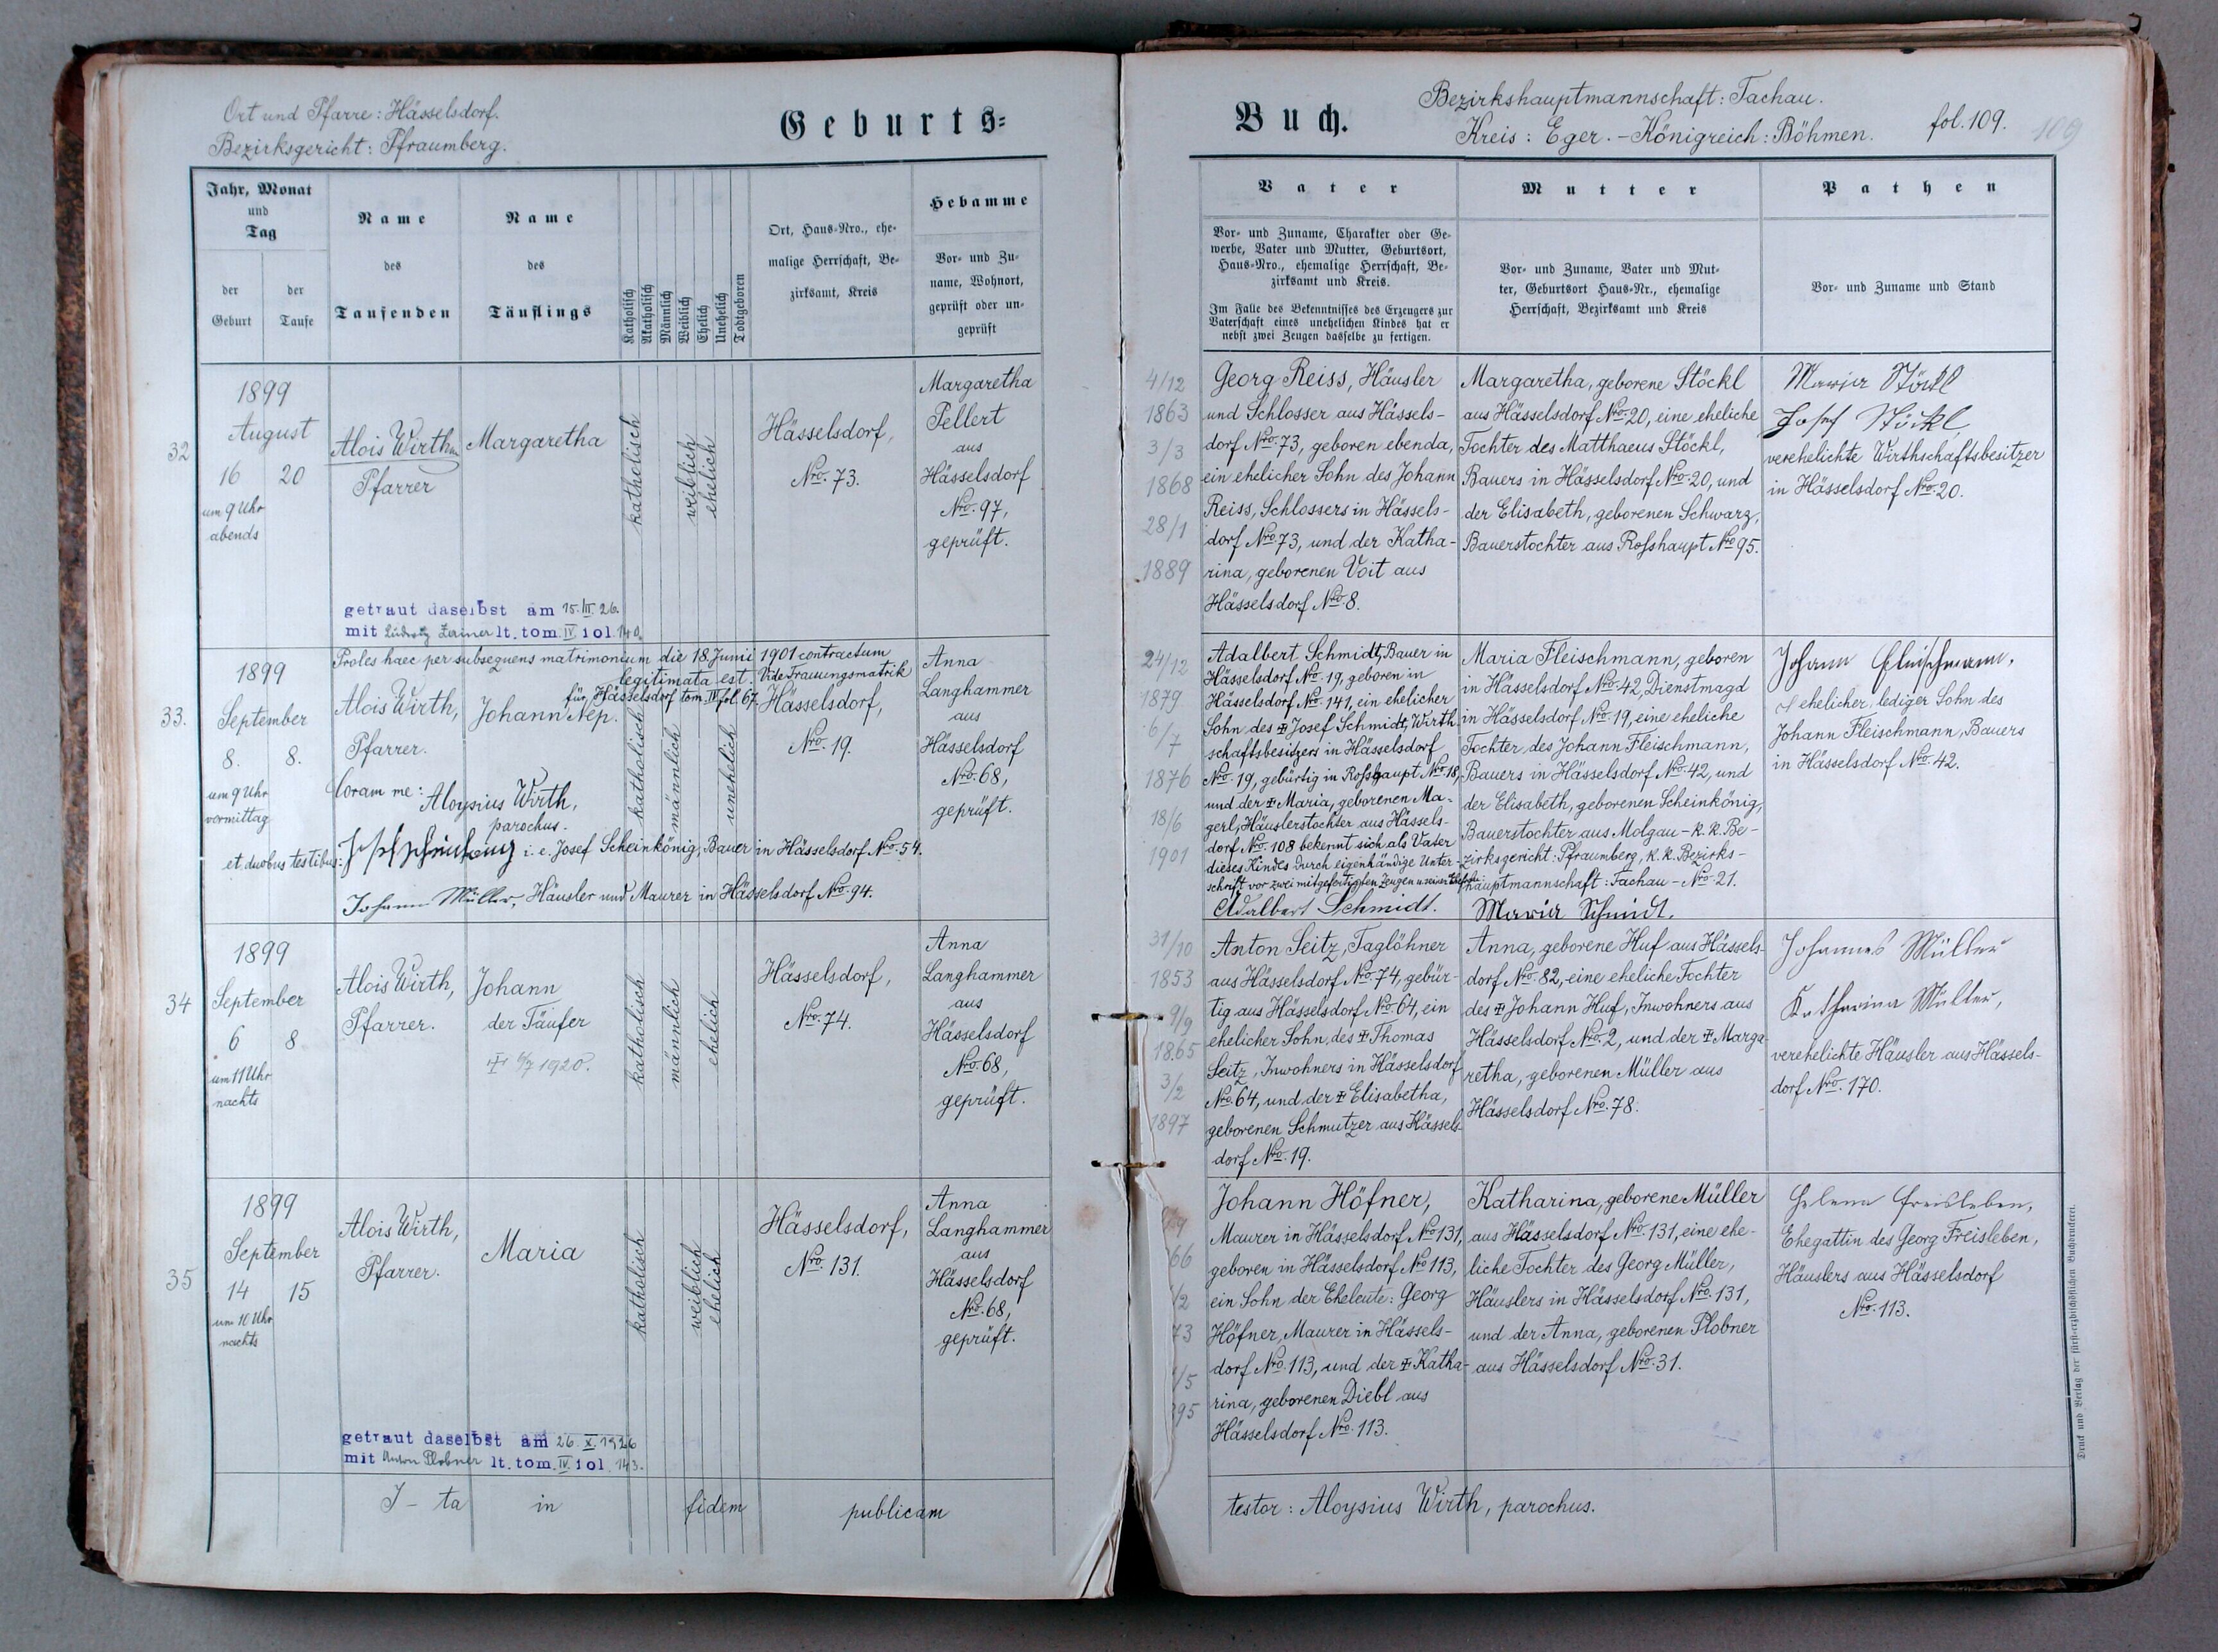 Ort und Pfarre: Hässelsdorf.
Bezirksgericht: Pfraumberg.
Geburts=
Jahr, Monat
und
Tag
der
Geburt
der
Taufe
Name
des
Taufenden
Name
des
Täuflings
Katholisch
Akatholisch
Männlich
Weiblich
Ehelich
Unehelich
Todtgeboren
Ort, Haus=Nro., ehe=
malige Herrschaft, Be=
zirksamt, Kreis
Hebamme
Vor= und Zu=
name, Wohnort,
geprüft oder un=
geprüft
32
1899
August
16 20
um 9 Uhr
abends
Alois Wirth
Pfarrer
Margaretha
katholisch
weiblich
ehelich
Hässelsdorf,
Nro. 73.
Margaretha
Pellert
aus
Hässelsdorf
Nro. 97,
geprüft.
getraut daselbst am 15. II. 26.
mit Ludwig lt. tom. IV fol. 140.
33.
1899
September
8. 8.
um 9 Uhr
vormittag
Proles haec per subsequens matrimonium die 18. Junii 1901 contractum
legitimata est. Vide Trauungsmatrik
für Hässelsdorf tom. III fol. 67.
Alois Wirth,
Pfarrer.
Johann Nep.
katholisch
männlich
unehelich
Hässelsdorf,
Nro. 19.
Anna
Langhammer
aus
Hässelsdorf
Nro. 68,
geprüft.
Coram me: Aloysius Wirth,
parochus.
et duobus testibus: i. e. Josef Scheinkönig, Bauer in Hässelsdorf Nro. 54.
Johann Müller, Häusler und Maurer in Hässelsdorf Nro. 94.
34
1899
September
6 8
um 11 Uhr
nachts
Alois Wirth,
Pfarrer.
Johann
der Täufer
1920.
katholisch
männlich
ehelich
Hässelsdorf,
Nro. 74.
Anna
Langhammer
aus
Hässelsdorf
Nro. 68,
geprüft.
35
1899
September
14 15
um 10 Uhr
nachts
Alois Wirth,
Pfarrer.
Maria
katholisch
weiblich
ehelich
Hässelsdorf,
Nro. 131.
Anna
Langhammer
aus
Hässelsdorf
Nro. 68,
geprüft.
getraut daselbst am 26. X. 1926
mit Anton Plobner lt. tom. IV fol. 143.
I - ta in fidem publicam
Buch.
Bezirkshauptmannschaft: Tachau.
Kreis: Eger. - Königreich: Böhmen.
fol. 109.
109
Vater
Vor= und Zuname, Charakter oder Ge=
werbe, Vater und Mutter, Geburtsort,
Haus=Nro., ehemalige Herrschaft, Be=
zirksamt und Kreis.
Im Falle des Bekenntnisses des Erzeugers zur
Vaterschaft eines unehelichen Kindes hat er
nebst zwei Zeugen dasselbe zu fertigen.
Mutter
Vor= und Zuname, Vater und Mut=
ter, Geburtsort Haus=Nr., ehemalige
Herrschaft, Bezirksamt und Kreis
Pathen
Vor= und Zuname und Stand
4/12
1863
3/3
1868
28/1
1889
Georg Reiss, Häusler
und Schlosser aus Hässels-
dorf Nro. 73, geboren ebenda,
ein ehelicher Sohn des Johann
Reiss, Schlossers in Hässels-
dorf Nro. 73, und der Katha-
rina, geborenen Voit aus
Hässelsdorf Nro. 8.
Margaretha, geborene Stöckl
aus Hässelsdorf Nro. 20, eine eheliche
Tochter des Matthaeus Stöckl,
Bauers in Hässelsdorf Nro. 20, und
der Elisabeth, geborenen Schwarz,
Bauerstochter aus Rosshaupt Nro. 95.
Maria Stöckl
Josef Stöckl,
verehelichte Wirthschaftsbesitzer
in Hässelsdorf Nro. 20.
24/12
1879
6/7
1876
18/6
1901
Adalbert Schmidt, Bauer in
Hässelsdorf Nro. 19, geboren in
Hässelsdorf Nro. 141, ein ehelicher
Sohn des ✠ Josef Schmidt, Wirth-
schaftsbesitzers in Hässelsdorf
Nro. 19, gebürtig in Rosshaupt Nro. 18,
und der ✠ Maria, geborenen Ma-
gerl, Häuslerstochter aus Hässels-
dorf Nro. 108 bekennt sich als Vater
dieses Kindes durch eigenhändige Unter-
schrift vor zwei mitgefertigten Zeugen u.
Adalbert Schmidt.
Maria Fleischmann, geboren
in Hässelsdorf Nro. 42, Dienstmagd
in Hässelsdorf Nro. 19, eine eheliche
Tochter des Johann Fleischmann,
Bauers in Hässelsdorf Nro. 42, und
der Elisabeth, geborenen Scheinkönig,
Bauerstochter aus Molgau - k. k. Be-
zirksgericht: Pfraumberg, k. k. Bezirks-
hauptmannschaft: Tachau - Nro. 21.
Maria Schmidt.
Johann Fleischmann,
ehelicher, lediger Sohn des
Johann Fleischmann, Bauers
in Hässelsdorf Nro. 42.
31/10
1853
9/9
1865
3/2
1897
Anton Seitz, Taglöhner
aus Hässelsdorf Nro. 74, gebür-
tig aus Hässelsdorf Nro. 64, ein
ehelicher Sohn des ✠ Thomas
Seitz, Inwohners in Hässelsdorf
Nro. 64, und der ✠ Elisabetha,
geborenen Schmutzer aus Hässels-
dorf Nro. 19.
Anna, geborene Huf aus Hässels-
dorf Nro. 82, eine eheliche Tochter
des ✠ Johann Huf, Inwohners aus
Hässelsdorf Nro. 2, und der ✠ Marga-
retha, geborenen Müller aus
Hässelsdorf Nro. 78.
Johannes Müller
Katharina Müller,
verehelichte Häusler aus Hässels-
dorf Nro. 170.
66
/2
73
/5
95
Johann Höfner,
Maurer in Hässelsdorf Nro. 131,
geboren in Hässelsdorf Nro. 113,
ein Sohn der Eheleute: Georg
Höfner, Maurer in Hässels-
dorf Nro. 113, und der ✠ Katha-
rina, geborenen Diebl aus
Hässelsdorf Nro. 113.
Katharina, geborene Müller
aus Hässelsdorf Nro. 131, eine ehe-
liche Tochter des Georg Müller,
Häuslers in Hässelsdorf Nro. 131,
und der Anna, geborenen Plobner
aus Hässelsdorf Nro. 31.
Helena Freisleben,
Ehegattin des Georg Freisleben,
Häuslers aus Hässelsdorf
Nro. 113.
testor: Aloysius Wirth, parochus.
Druck und Verlag der fürst=erzbischöflichen Buchdruckerei.